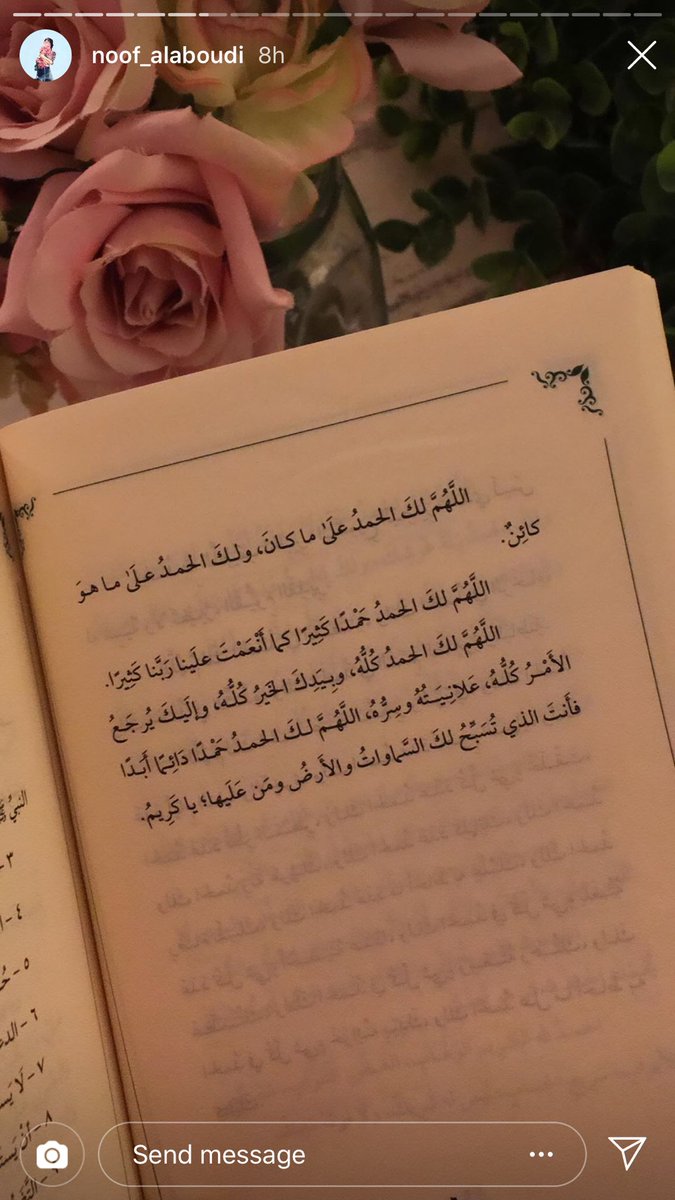 noof_alaboudi 8h
اللَّهُمَّ لكَ الحمدُ علَىٰ ما كـانَ، ولـكَ الحمـدُ عـلَىٰ مـا هـوَ
كائِنٌ.
اللَّهُمَّ لكَ الحمدُ حَمْدًا كَثِيرًا كما أَنْعَمْتَ علَينا رَبَّنا كَثِيرًا.
اللَّهُمَّ لكَ الحمدُ كُلُّهُ، وبِـيَدِكَ الخَيرُ كُلُّـهُ، وإلَيـكَ يُرجَـعُ
الأَمْـرُ كُلُّـهُ، عَلانِيَـتُهُ وسِرُّهُ، اللَّهُـمَّ لـكَ الحمـدُ حَمْـدًا دَائِـمًا أَبَـدًا
فأَنتَ الذي تُسَبِّحُ لكَ السَّماواتُ والأَرضُ ومَن عَلَيها؛ يا كَرِيمُ.
النبيُّ ﷺ
٣ -
٤ -
٥ -
٦ -
٧ - لَا
٨ - أنْ
Send message